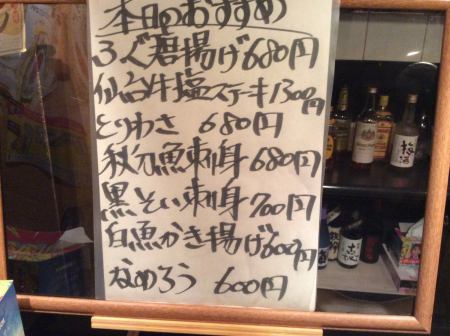 本日のおすすめ
ふぐ唐揚げ680円
仙台牛塩ステーキ1300円
とりわさ 680円
秋刀魚刺身 680円
黒そい刺身 700円
白魚かき揚げ600円
なめろう 600円
梅酒